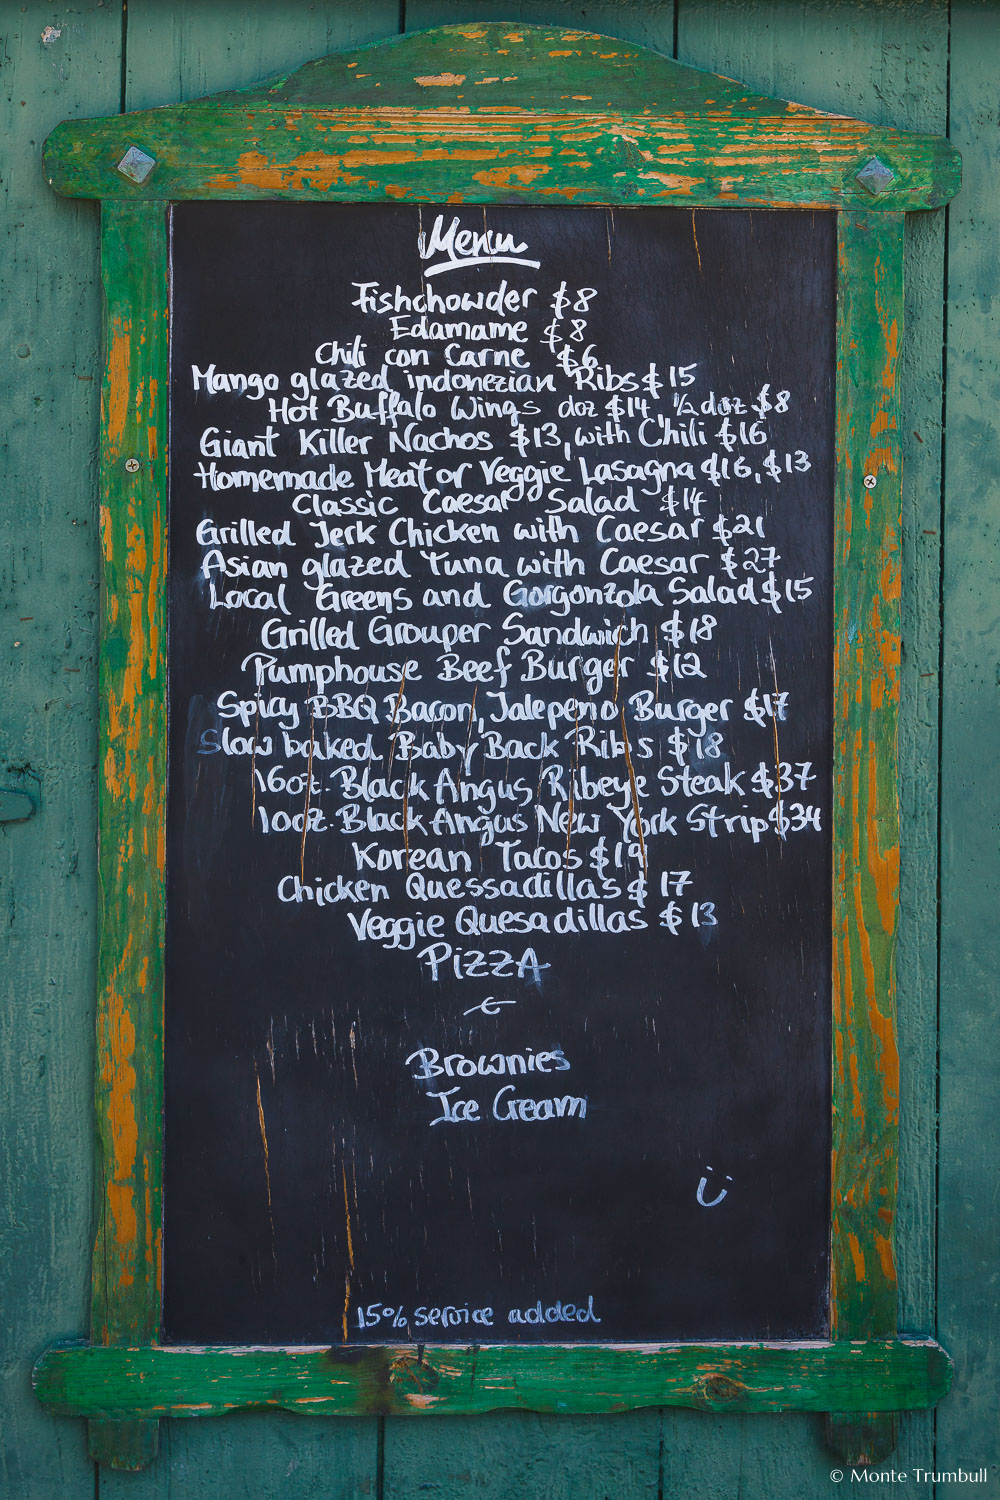 Menu
Fishchowder $8
Edamame $8
Chili con Carne $6
Mango glazed indonezian Ribs $15
Hot Buffalo Wings doz $14, ½ doz $8
Giant Killer Nachos $13, with Chili $16
Homemade Meat or Veggie Lasagna $16, $13
Classic Caesar Salad $14
Grilled Jerk Chicken with Caesar $21
Asian glazed Tuna with Caesar $27
Local Greens and Gorgonzola Salad $15
Grilled Grouper Sandwich $18
Pumphouse Beef Burger $12
Spicy BBQ Bacon, Jalepeno Burger $17
Slow baked Baby Back Ribs $18
16oz. Black Angus Ribeye Steak $37
10oz. Black Angus New York Strip $34
Korean Tacos $19
Chicken Quessadillas $17
Veggie Quesadillas $13
PIZZA
Brownies
Ice Cream
15% service added
© Monte Trumbull